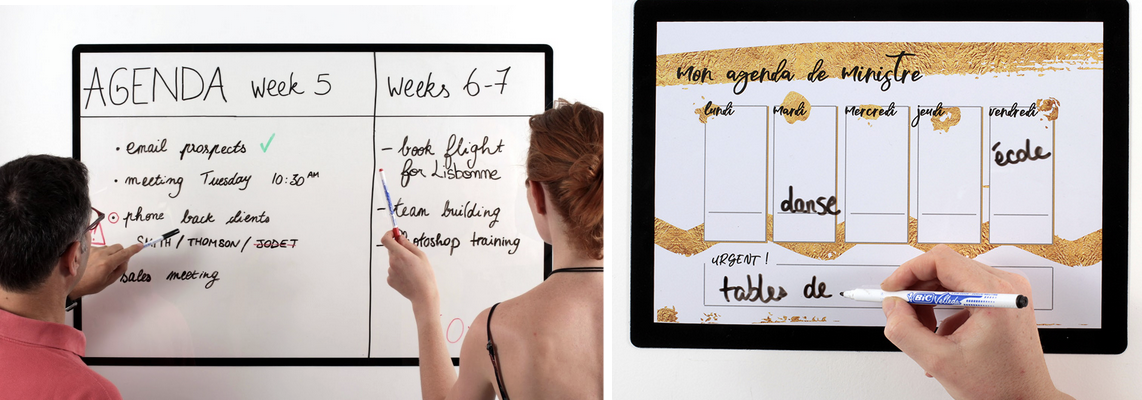 AGENDA week 5
• email prospects ✓
• meeting Tuesday 10:30 AM
phone back clients
/ THOMSON / JODET
sales meeting
Weeks 6-7
- book flight
for Lisbonne
- team building
training
mon agenda de ministre
lundi mardi mercredi jeudi vendredi
école
danse
URGENT !
tables de
BIC Velleda